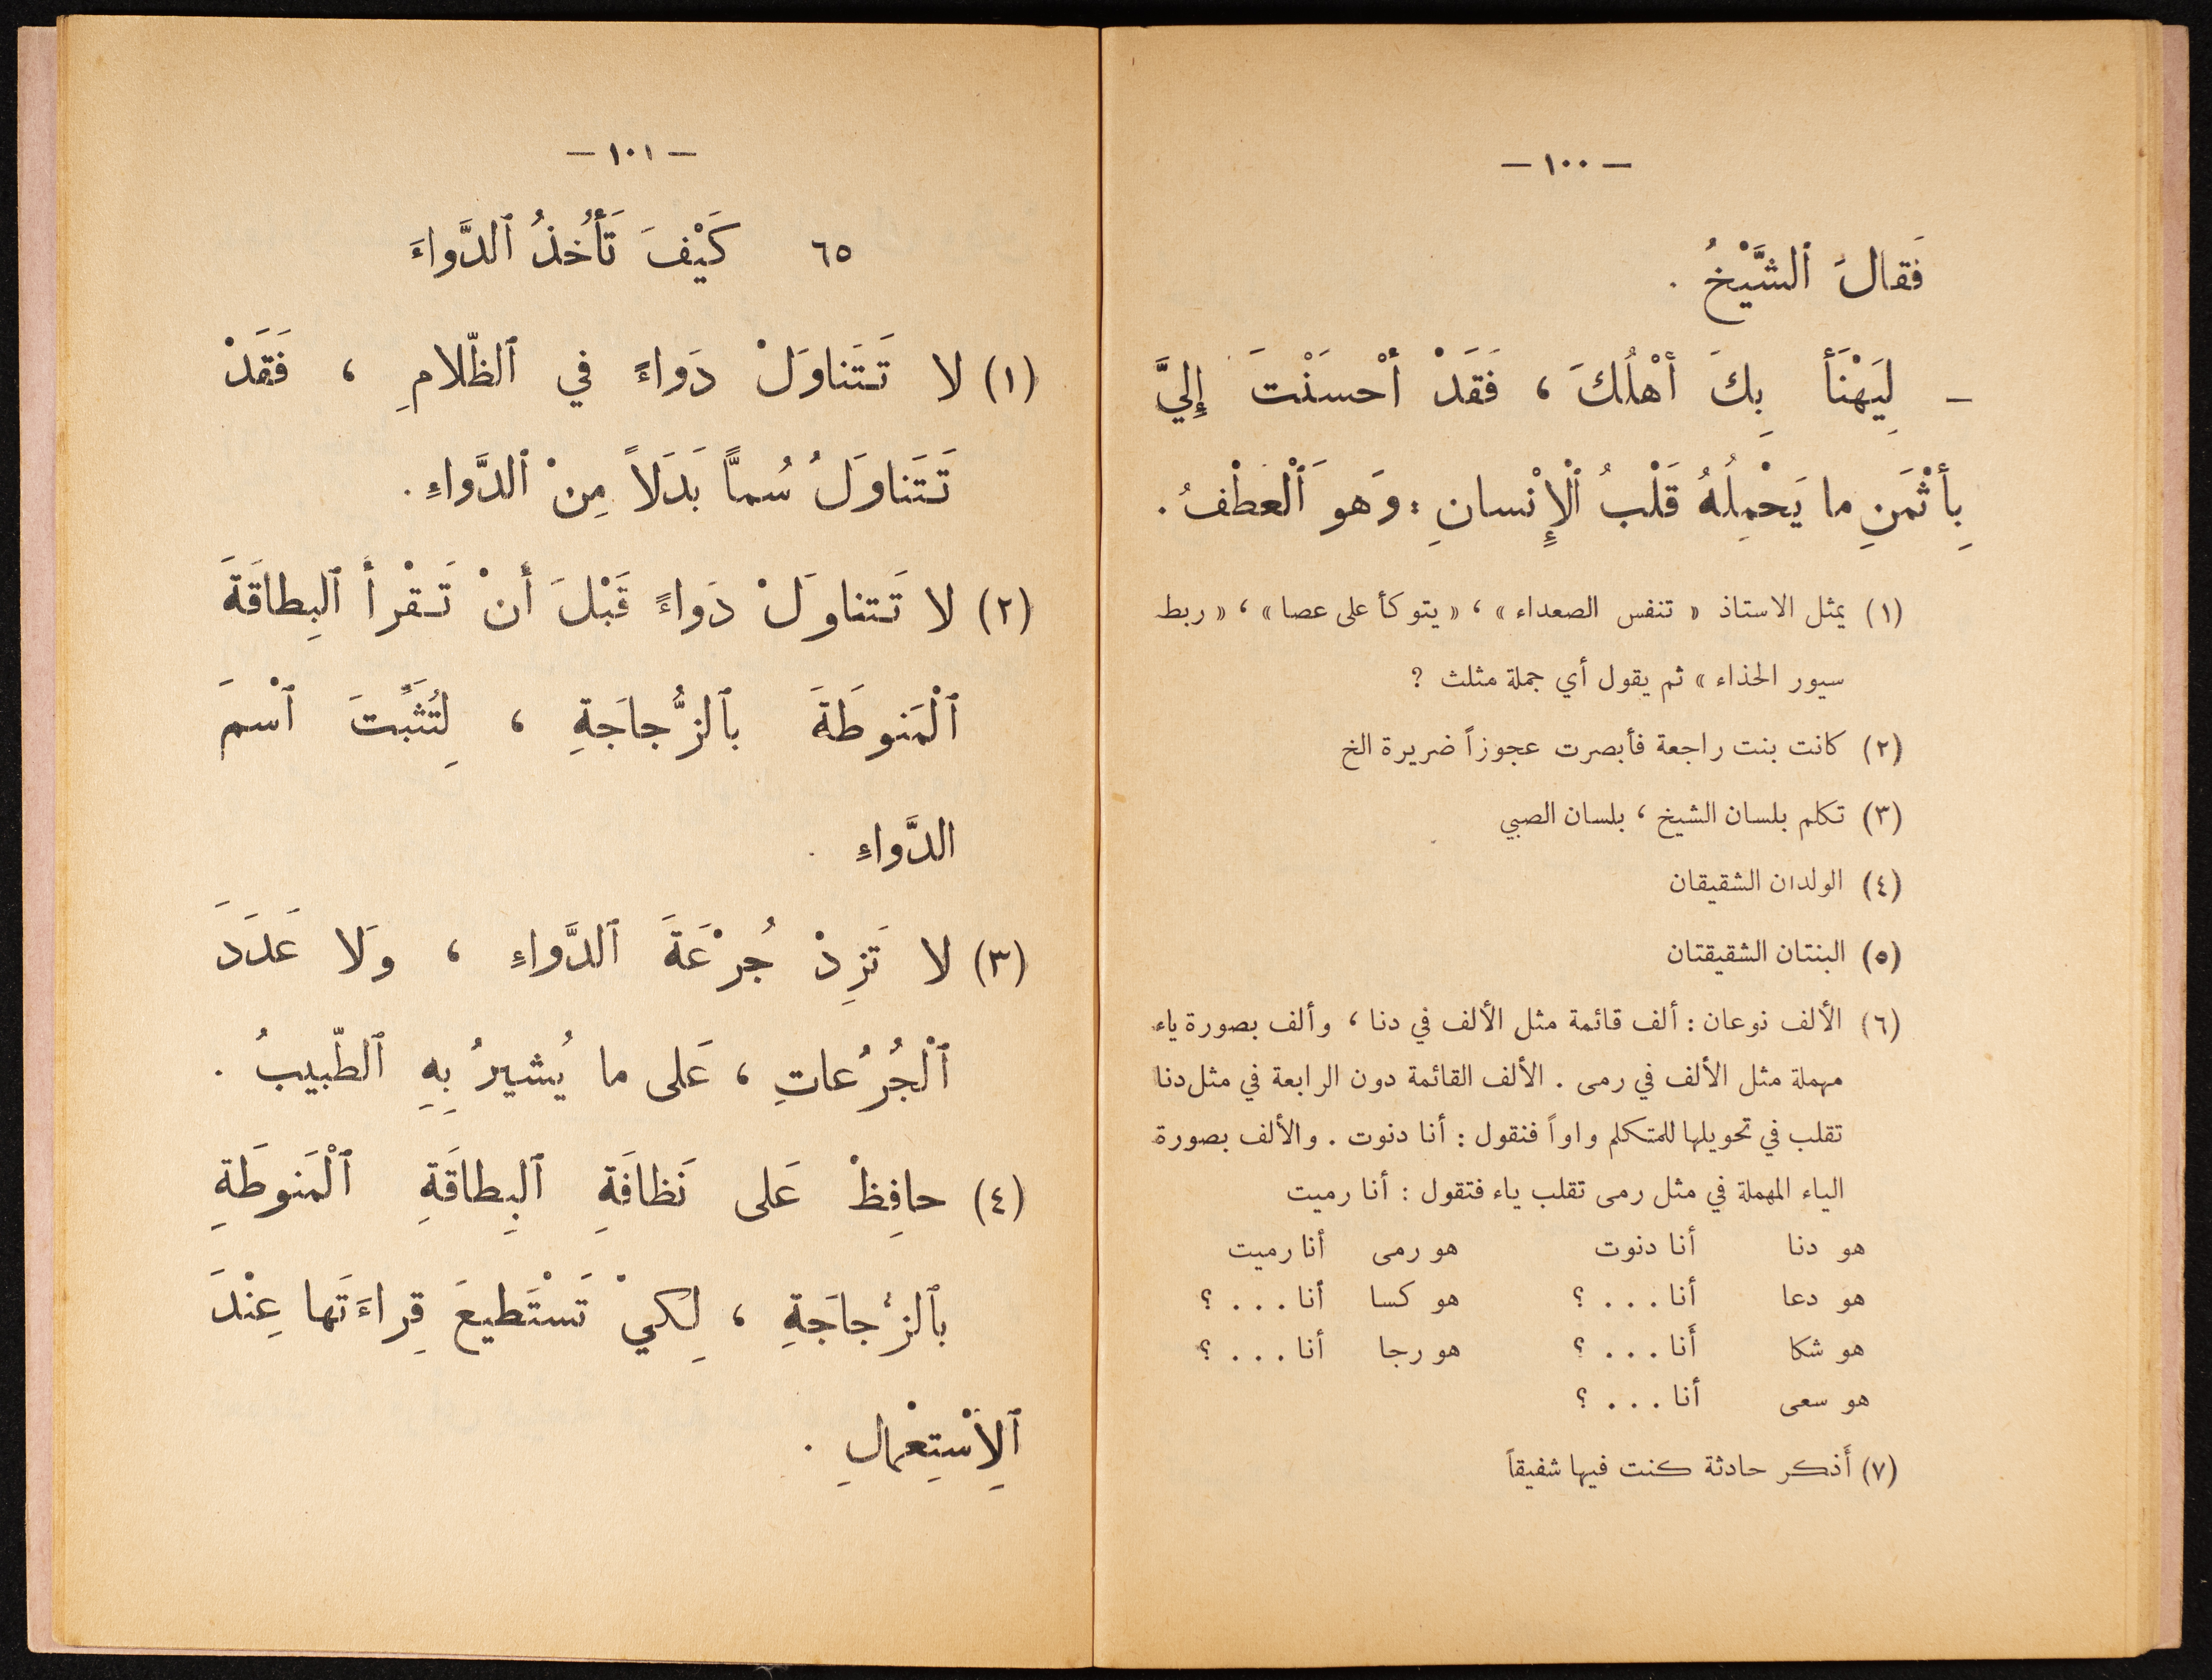 — ١٠٠ —
فَقالَ ٱلشَّيْخُ .
— لِيَهْنَأْ بِكَ أَهْلُكَ ، فَقَدْ أَحْسَنْتَ إِلَيَّ
بِأَثْمَنِ ما يَحْمِلُهُ قَلْبُ ٱلْإِنْسانِ : وَهوَ ٱلْعطْفُ .
(١) يمثل الاستاذ « تنفس الصعداء » ، « يتوكأ على عصا » ، « ربط
سيور الحذاء » ثم يقول أي جملة مثلث ؟
(٢) كانت بنت راجعة فأبصرت عجوزاً ضريرة الخ
(٣) تكلم بلسان الشيخ ، بلسان الصبي
(٤) الولدان الشقيقان
(٥) البنتان الشقيقتان
(٦) الألف نوعان : ألف قائمة مثل الألف في دنا ، وألف بصورة ياء
مهملة مثل الألف في رمى . الألف القائمة دون الرابعة في مثل دنا
تقلب في تحويلها للمتكلم واواً فنقول : أنا دنوت . والألف بصورة
الياء المهملة في مثل رمى تقلب ياء فتقول : أنا رميت
هو دنا أنا دنوت هو رمى أنا رميت
هو دعا أنا . . . ؟ هو كسا أنا . . . ؟
هو شكا أنا . . . ؟ هو رجا أنا . . . ؟
هو سعى أنا . . . ؟
(٧) أذكر حادثة كنت فيها شفيقاً
— ١٠١ —
٦٥ كَيْفَ تَأْخُذُ ٱلدَّواءَ
(١) لا تَتَناوَلْ دَواءً في ٱلظّلامِ ، فَقَدْ
تَتَناوَلُ سُمًّا بَدَلاً مِنْ ٱلدَّواءِ .
(٢) لا تَتناوَلْ دَواءً قَبْلَ أَنْ تَقْرأَ ٱلبِطاقَةَ
ٱلْمَنوطَةَ بٱلزُّجاجَةِ ، لِتُثَبِّتَ ٱسْمَ
الدَّواءِ .
(٣) لا تَزِدْ جُرْعَةَ ٱلدَّواءِ ، وَلا عَدَدَ
ٱلْجُرُعاتِ ، عَلى ما يُشيرُ بِهِ ٱلطّبيبُ .
(٤) حافِظْ عَلى نَظافَةِ ٱلبِطاقَةِ ٱلْمَنوطَةِ
بٱلزُجاجَةِ ، لِكيْ تَسْتَطيعَ قِراءَتَها عِنْدَ
ٱلِاسْتِعْمالِ .